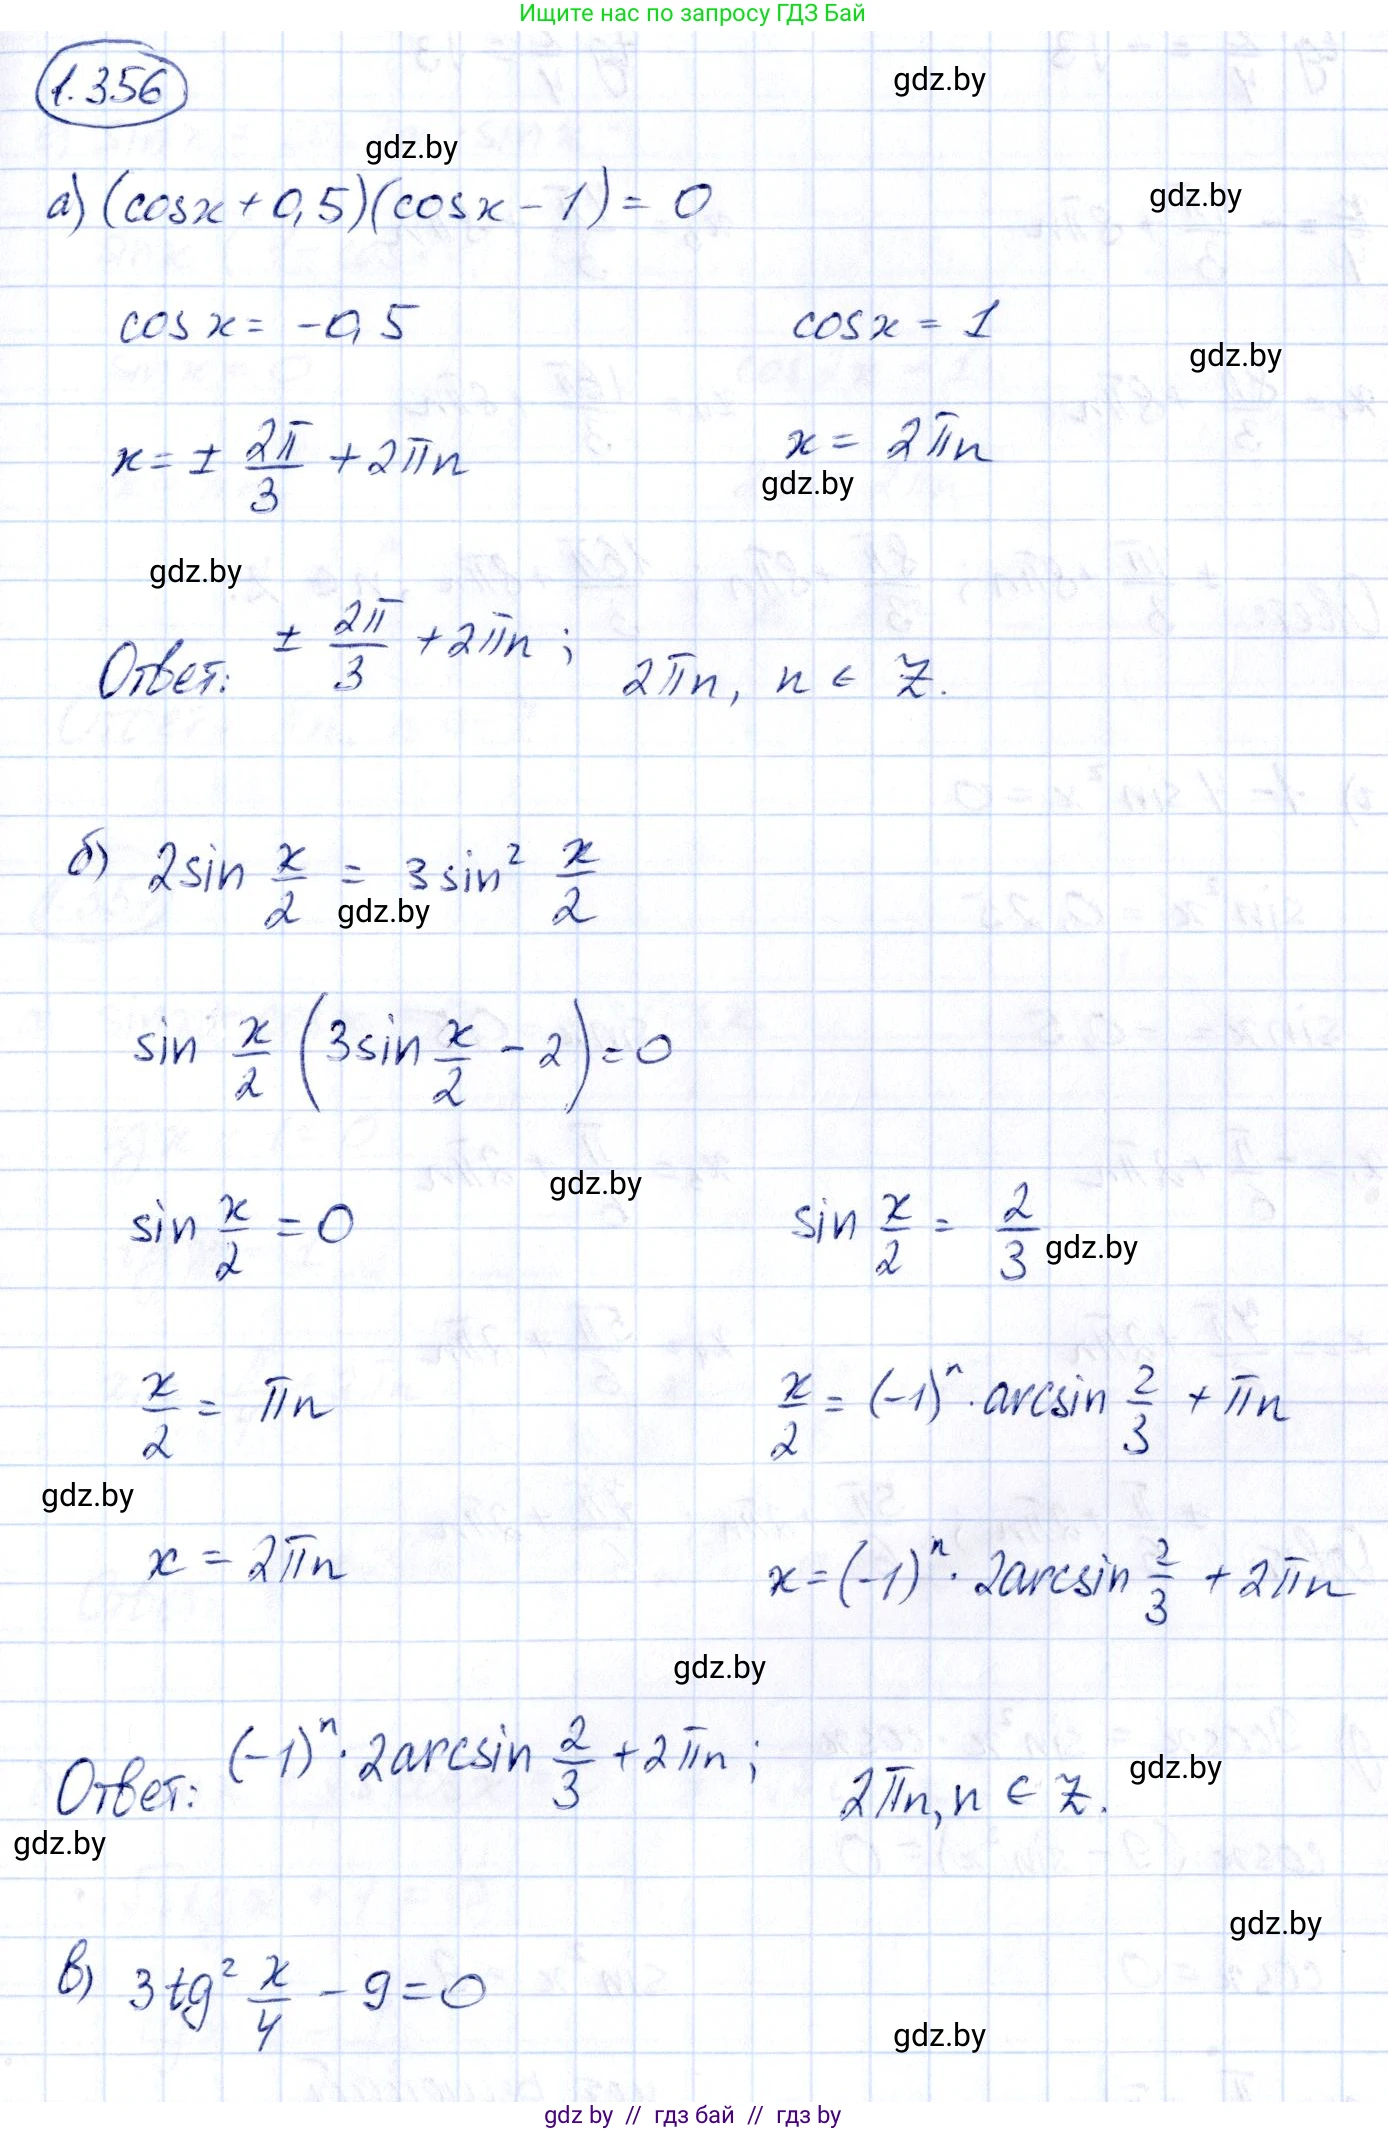 Ищите нас по запросу ГДЗ Бай
1.356
gdz.by
gdz.by
а) (cosx + 0,5)(cosx - 1) = 0
gdz.by
cos x = -0,5
cosx = 1
gdz.by
x = ± 2π/3 + 2πn
x = 2πn
gdz.by
gdz.by
Ответ: ± 2π/3 + 2πn ; 2πn, n ∈ Z.
б) 2sin x/2 = 3sin² x/2
gdz.by
sin x/2 (3sin x/2 - 2) = 0
gdz.by
sin x/2 = 0
sin x/2 = 2/3
gdz.by
x/2 = πn
x/2 = (-1)ⁿ · arcsin 2/3 + πn
gdz.by
x = 2πn
x = (-1)ⁿ · 2arcsin 2/3 + 2πn
gdz.by
Ответ: (-1)ⁿ · 2arcsin 2/3 + 2πn ; 2πn, n ∈ Z.
gdz.by
gdz.by
gdz.by
в) 3tg² x/4 - 9 = 0
gdz.by
gdz by // гдз бай // гдз by